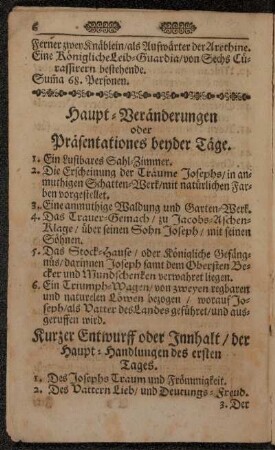 6
Ferner zwey Knäblein/als Aufwärter der Arethine.
Eine Königliche Leib-Guardia/von Sechs Cü-
rassirern bestehende.
Sum̃a 68. Personen.
Haupt-Veränderungen
oder
Präsentationes beyder Täge.
1. Ein Lustbares Sahl-Zimmer.
2. Die Erscheinung der Träume Josephs/in an-
muthigen Schatten-Werk/mit natürlichen Far-
ben vorgestellet.
3. Eine anmuthige Waldung und Garten-Werk.
4. Das Trauer-Gemach/zu Jacobs-Aschen-
Klage/über seinen Sohn Joseph/mit seinen
Söhnen.
5. Das Stock-Hause/oder Königliche Gefäng-
nüs/darinnen Joseph samt dem Obersten Be-
cker und Mundschencken verwahret liegen.
6. Ein Triumph-Wagen/von zweyen regbaren
und naturelen Löwen bezogen/worauf Jo-
seph/als Vatter des Landes geführet/und aus-
geruffen wird.
Kurzer Entwurff oder Innhalt/der
Haupt-Handlungen des ersten
Tages.
1. Des Josephs Traum und Frömmigkeit.
2. Des Vattern Lieb/und Deutungs-Freud.
3. Der